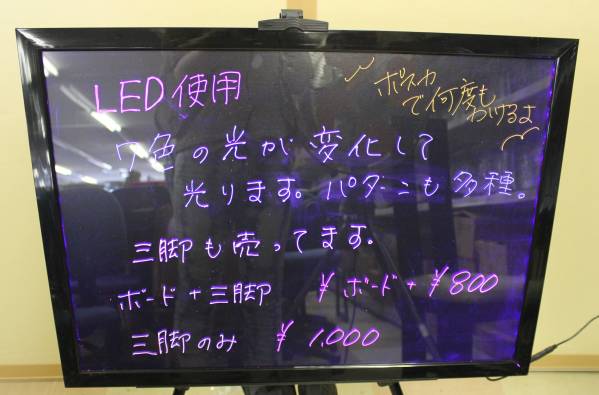 LED使用
ポスカ
で何度も
かけるよ
7色の光が変化して
光ります。パターンも多種。
三脚も売ってます。
ボード+三脚 ¥ボード+¥800
三脚のみ ¥1.000